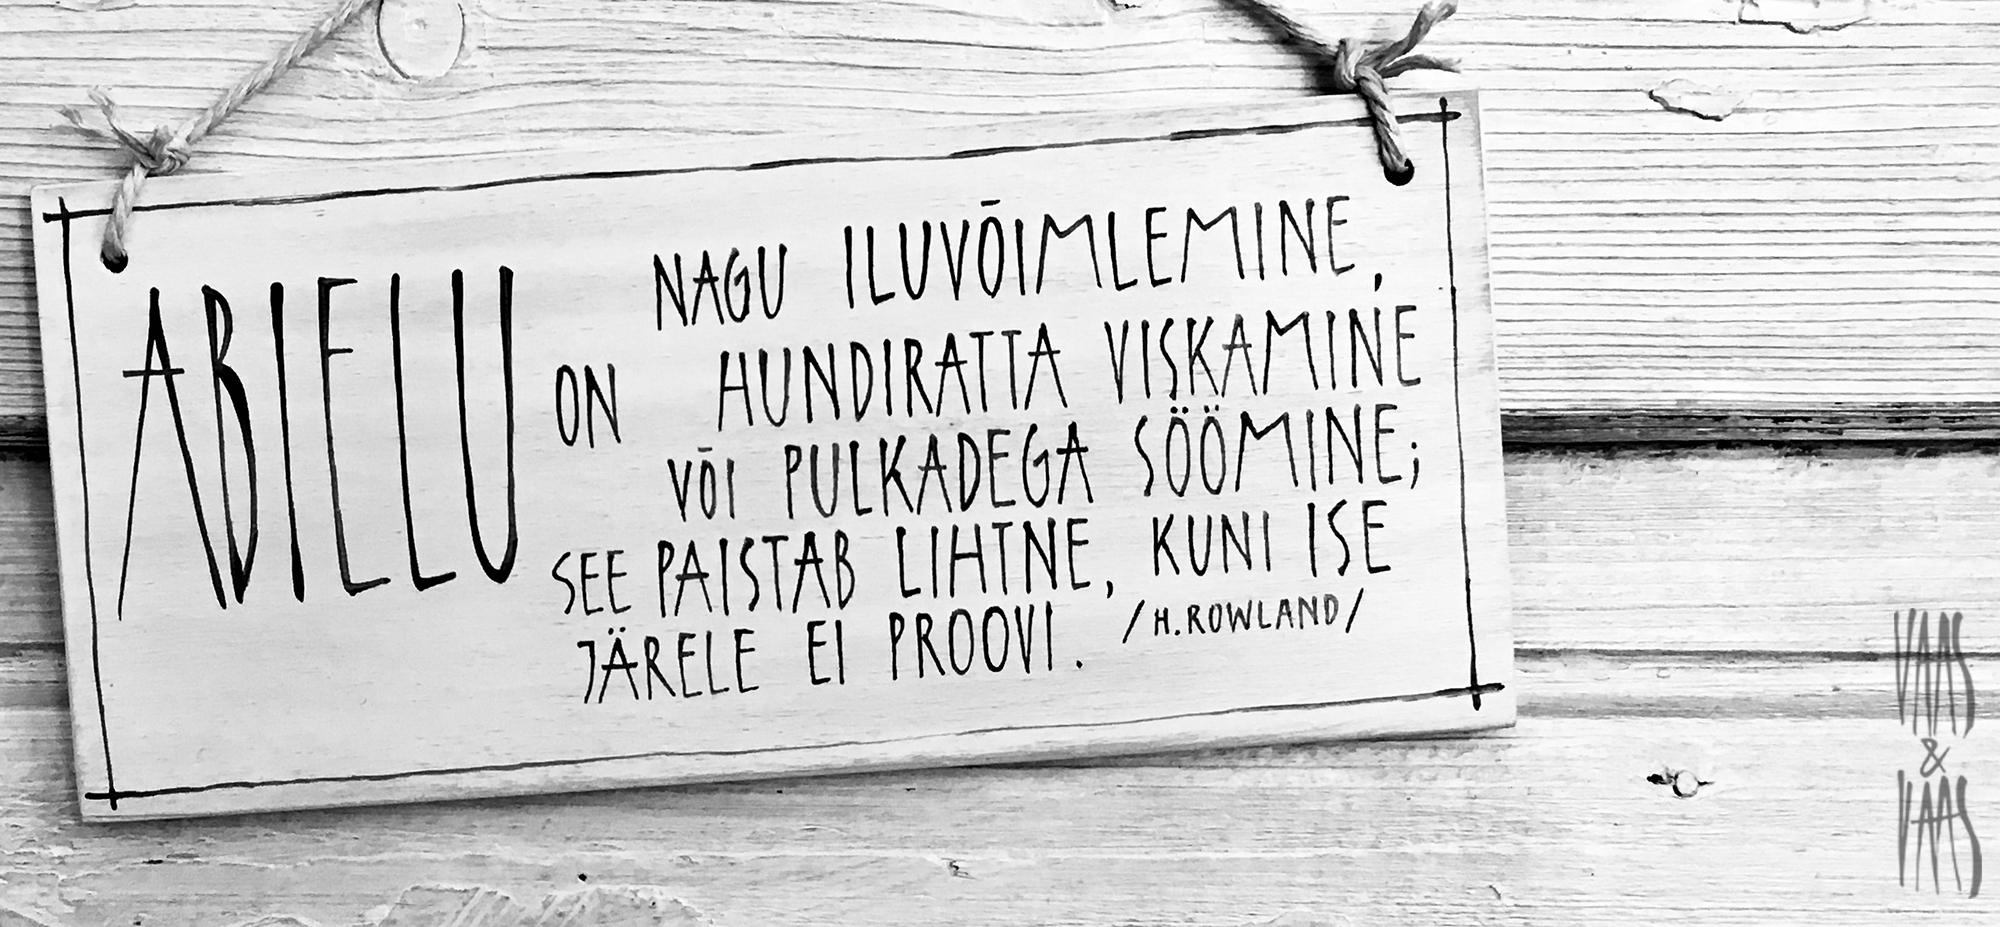 ABIELU
NAGU ILUVÕIMLEMINE,
ON HUNDIRATTA VISKAMINE
VÕI PULKADEGA SÖÖMINE;
SEE PAISTAB LIHTNE, KUNI ISE
JÄRELE EI PROOVI. /H.ROWLAND/
VAAS
&
VAAS